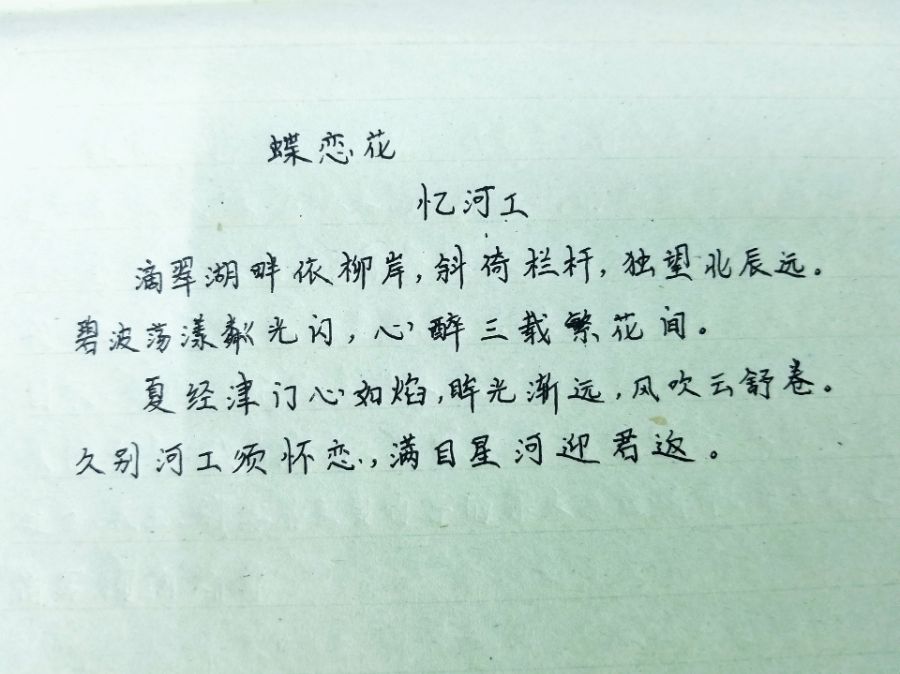 蝶恋花
忆河工
滴翠湖畔依柳岸,斜倚栏杆,独望北辰远。
碧波荡漾粼光闪,心醉三载繁花间。
夏经津门心如焰,眸光渐远,风吹云舒卷。
久别河工须怀恋,满目星河迎君返。